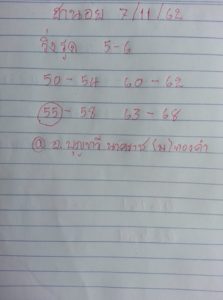 ฮานอย 7/11/62
วิ่งรูด 5-6
50-54 60-62
55-58 63-68
อ. บุญทวี นาคราช (ม) ทองคำ